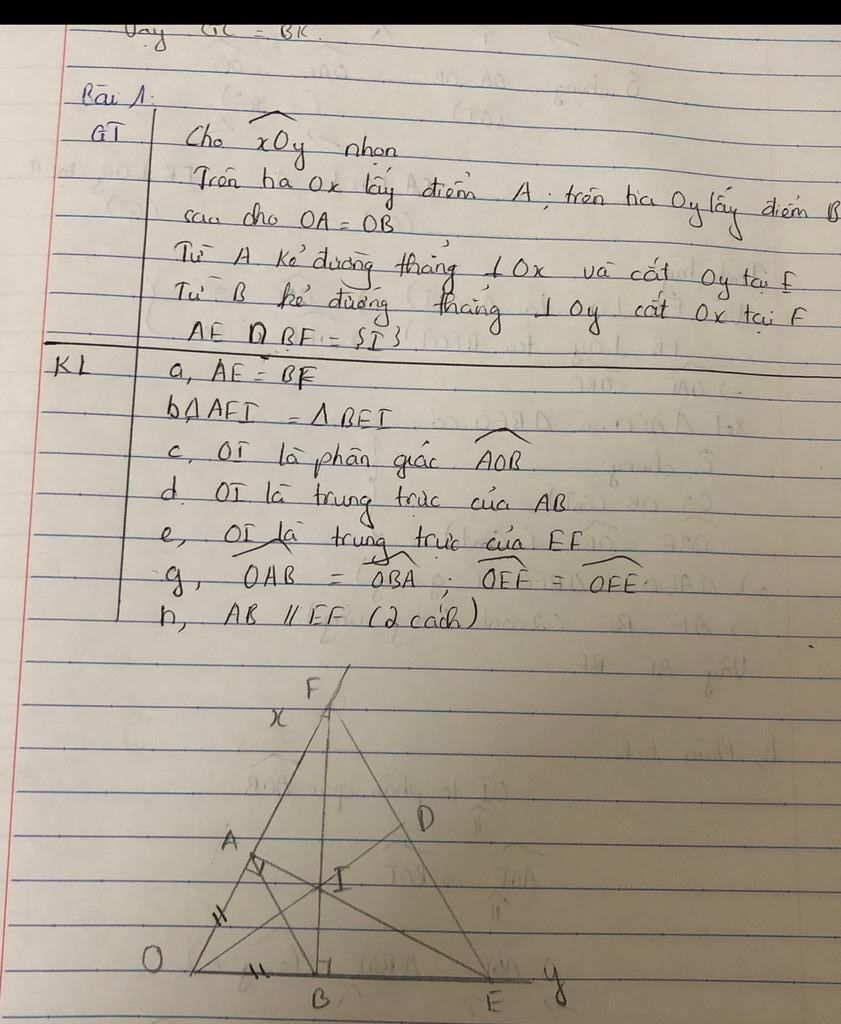 Vậy GC = BK.
Bài 1:
GT Cho xOy nhọn
Trên tia Ox lấy điểm A; trên tia Oy lấy điểm B
sao cho OA = OB
Từ A kẻ đường thẳng ⊥ Ox và cắt Oy tại E
Từ B kẻ đường thẳng ⊥ Oy cắt Ox tại F
AE ∩ BF = {I}
KL a, AE = BF
b, ΔAFI = ΔBEI
c, OI là phân giác AOB
d. OI là trung trực của AB
e, OI là trung trực của EF
g, OAB = OBA ; OEF = OFE
h, AB // EF (2 cách)
F
x
D
A
I
O
B
E
y